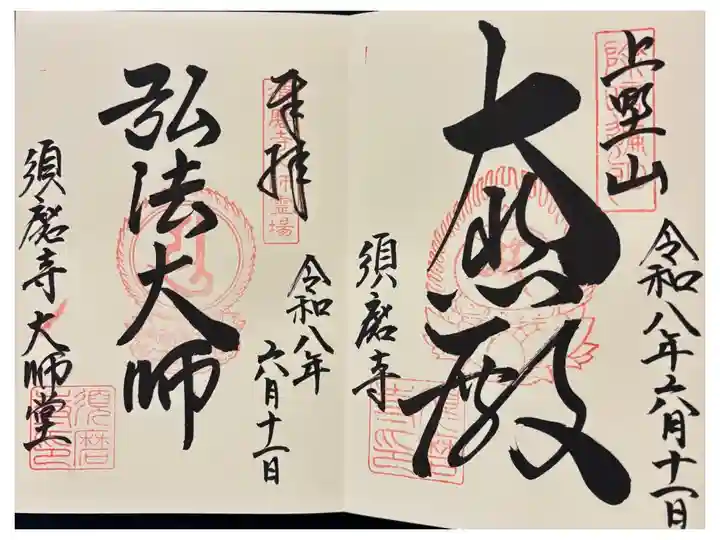 上野山
令和八年六月十一日
大悲殿
須磨寺
奉拝
令和八年
六月十一日
弘法大師
須磨寺大師堂
須磨